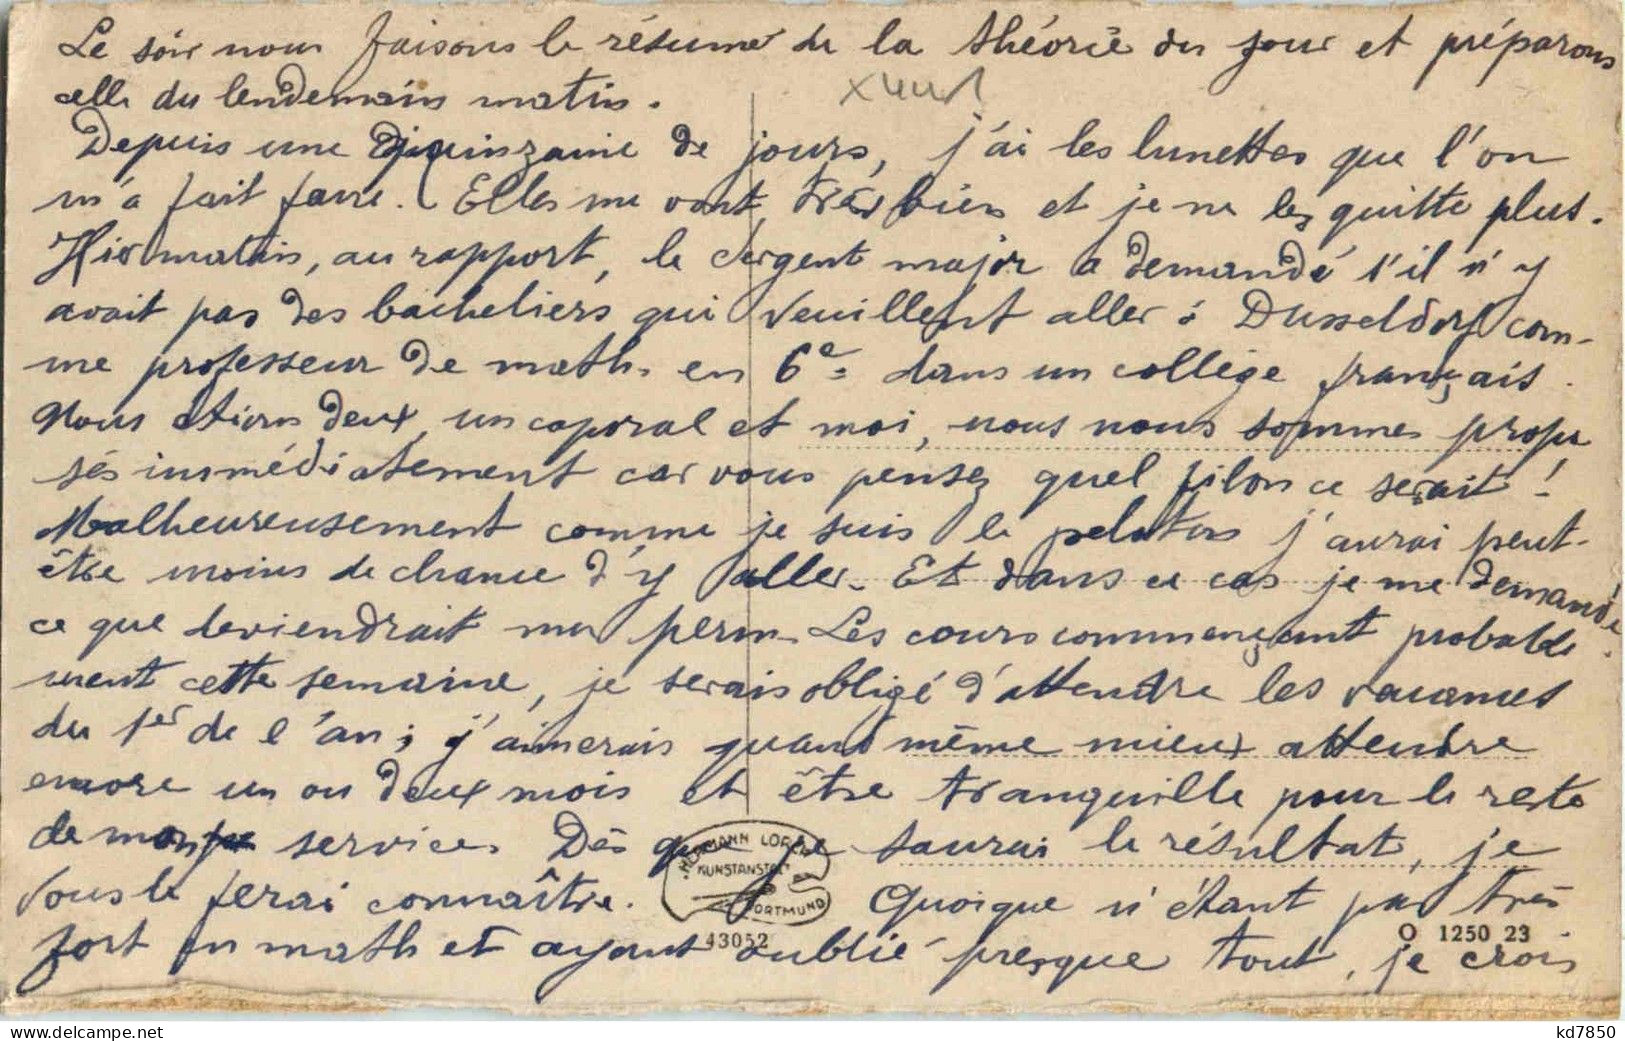 Le soir nous faisons le résumé de la théorie du jour et préparons
celle du lendemain matin.
Depuis une quinzaine de jours, j'ai les lunettes que l'on
m'a fait faire. Elles me vont très bien et je ne les quitte plus.
Hier matin, au rapport, le sergent major a demandé s'il n'y
avait pas des bacheliers qui veuillent aller à Dusseldorf com-
me professeur de math. en 6e dans un collège français.
Nous étions deux, un caporal et moi, nous nous sommes propo
sés immédiatement car vous pensez quel filon ce serait !
Malheureusement comme je suis le peloton j'aurai peut-
être moins de chance d'y aller. Et dans ce cas je me demande
ce que deviendrait ma perm. Les cours commençant probable
ment cette semaine, je serais obligé d'attendre les vacances
du 1er de l'an ; j'aimerais quand même mieux attendre
encore un ou deux mois et être tranquille pour le reste
de mon service. Dès que je saurai le résultat, je
vous le ferai connaître. Quoique n'étant pas très
HERMANN LORCH
KUNSTANSTALT
DORTMUND
fort en math et ayant oublié presque tout, je crois
43052
O 1250 23
delcampe.net
kd7850